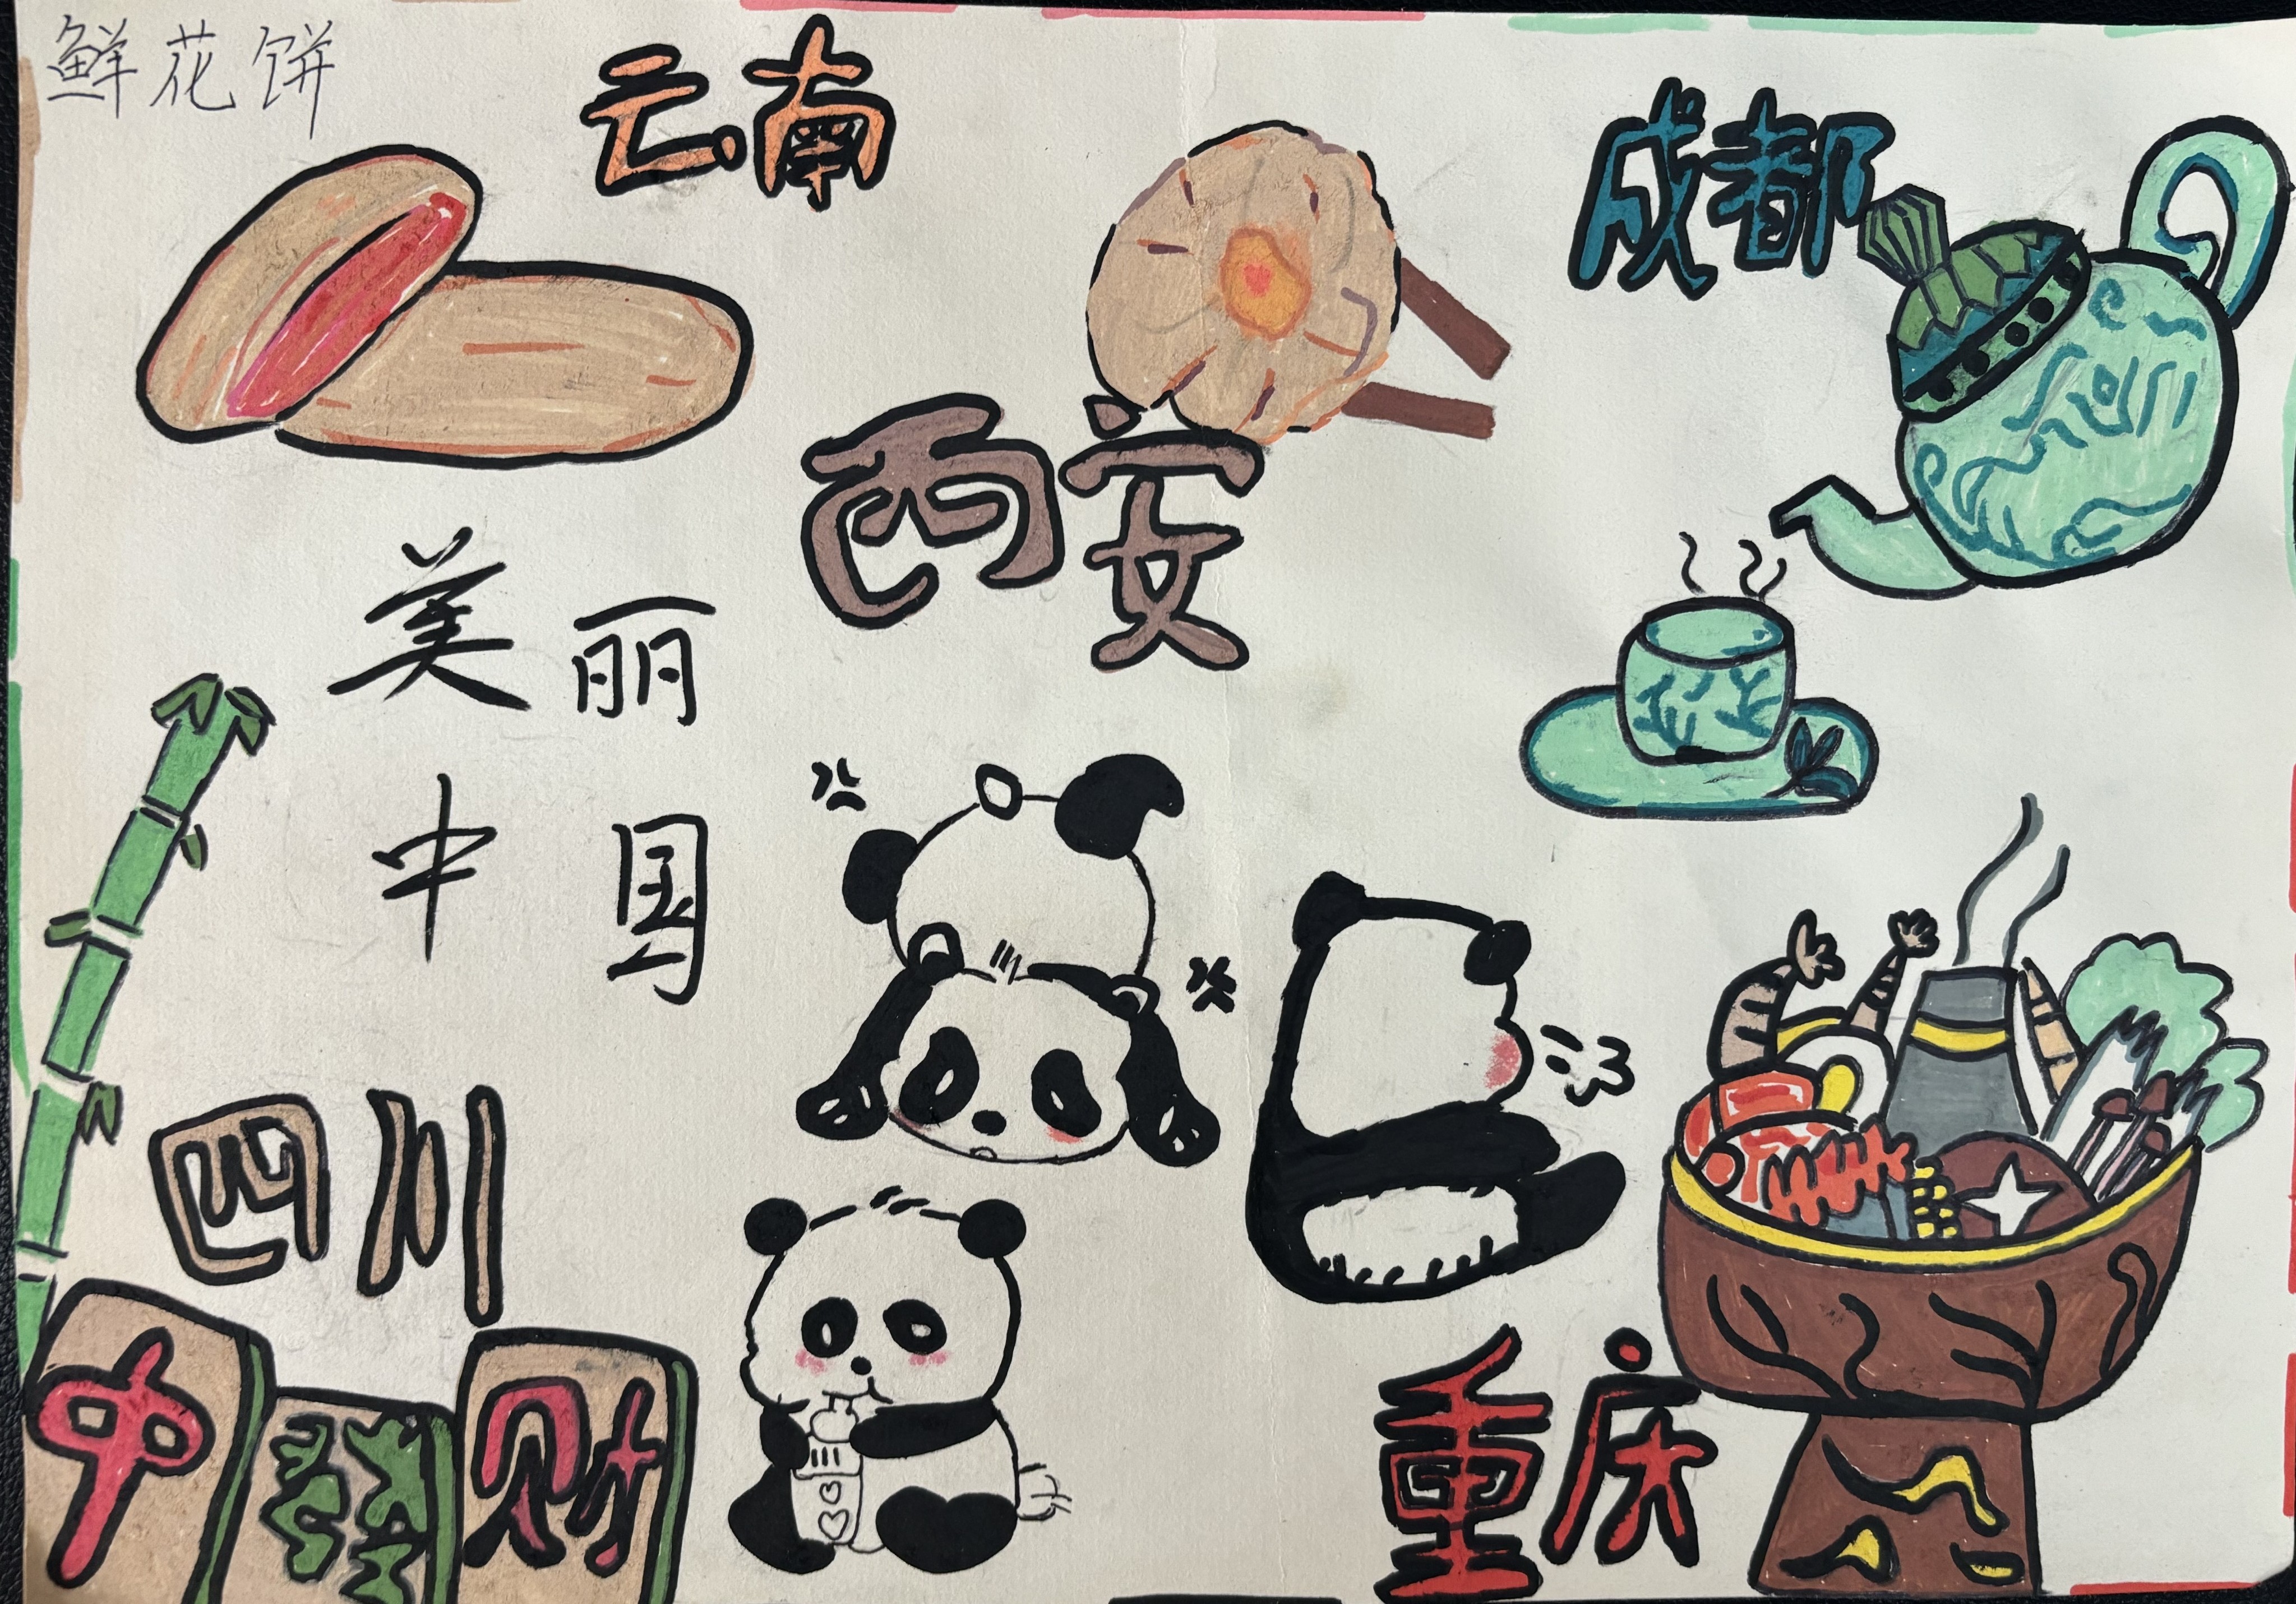 鲜花饼
云南
成都
西安
美丽
中国
四川
中發财
重庆